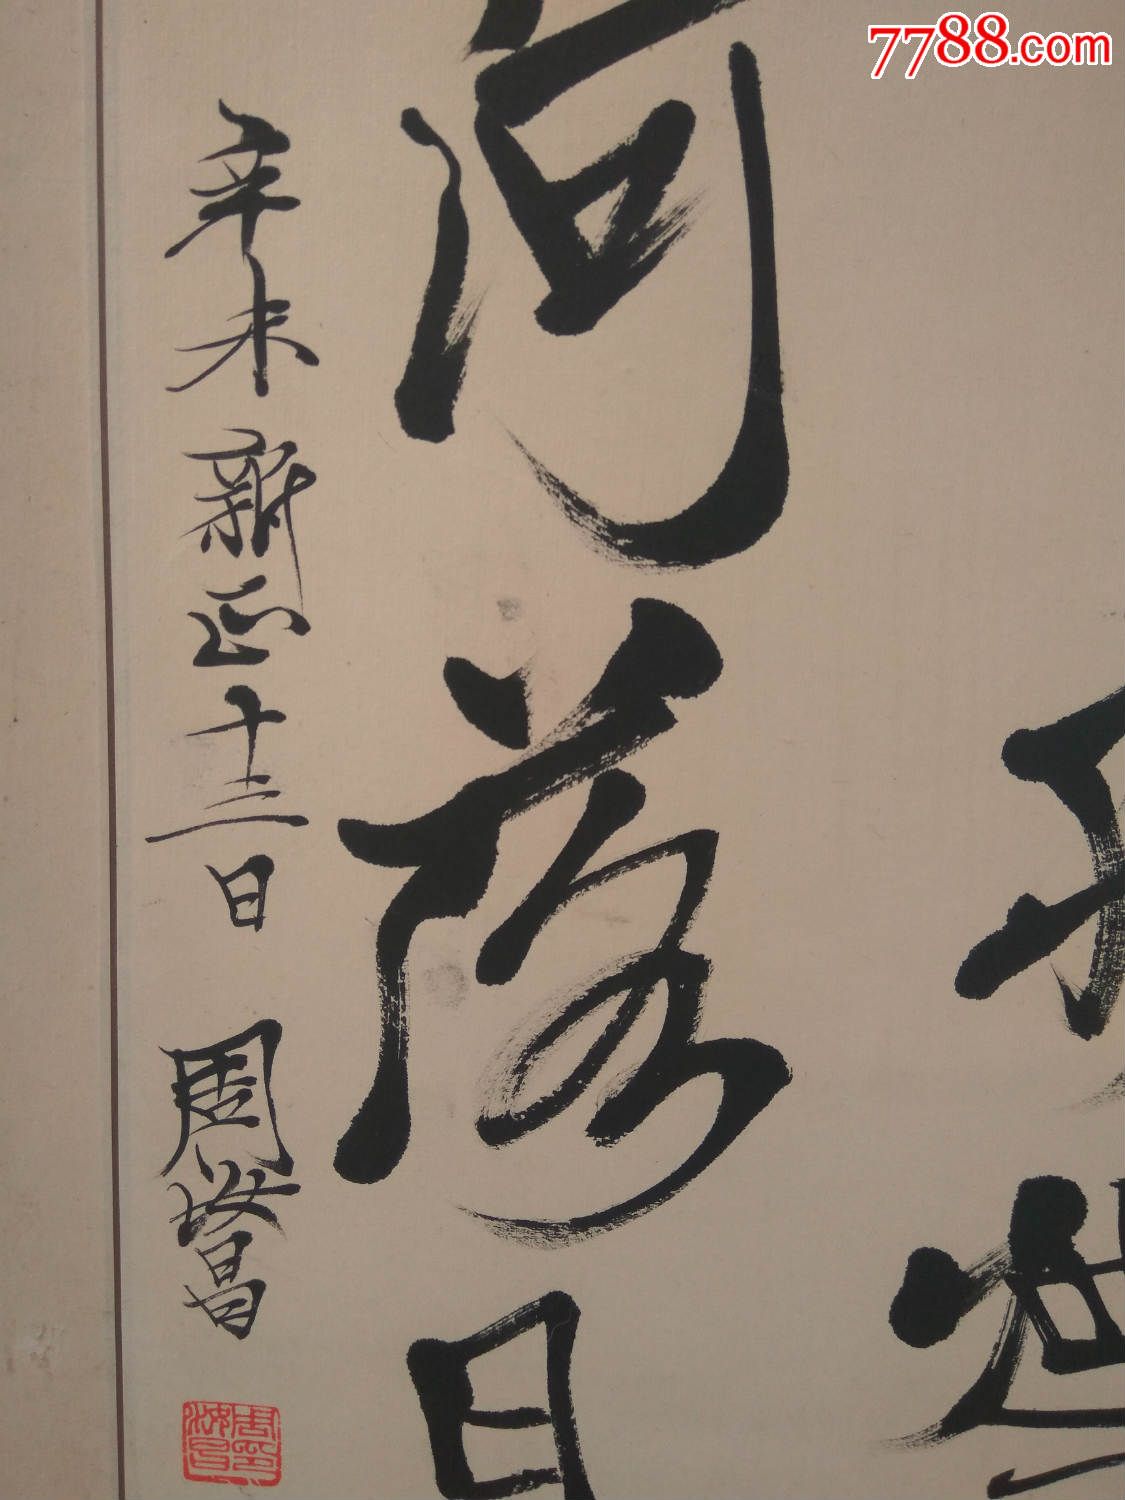 7788.com
河落日
辛未新正十三日 周汝昌
周汝昌印